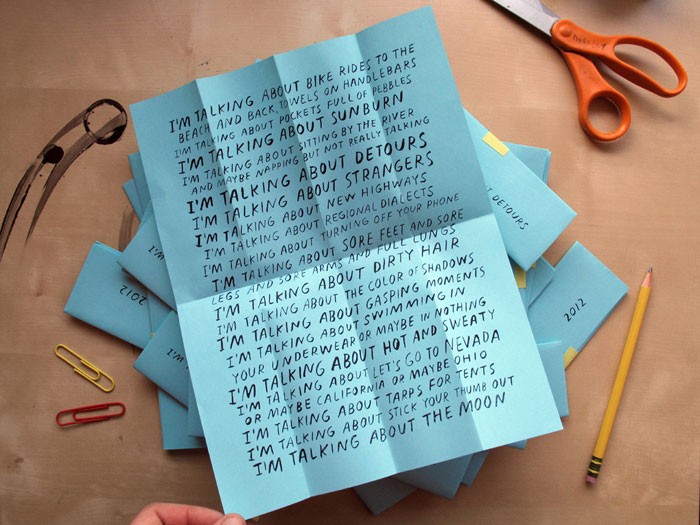 I'M TALKING ABOUT BIKE RIDES TO THE
BEACH AND BACK, TOWELS ON HANDLEBARS
I'M TALKING ABOUT POCKETS FULL OF PEBBLES
I'M TALKING ABOUT SUNBURN
I'M TALKING ABOUT SITTING BY THE RIVER
AND MAYBE NAPPING BUT NOT REALLY TALKING
I'M TALKING ABOUT DETOURS
I'M TALKING ABOUT STRANGERS
I'M TALKING ABOUT NEW HIGHWAYS
I'M TALKING ABOUT REGIONAL DIALECTS
I'M TALKING ABOUT TURNING OFF YOUR PHONE
I'M TALKING ABOUT SORE FEET AND SORE
LEGS AND SORE ARMS AND FULL LUNGS
I'M TALKING ABOUT DIRTY HAIR
I'M TALKING ABOUT THE COLOR OF SHADOWS
I'M TALKING ABOUT GASPING MOMENTS
I'M TALKING ABOUT SWIMMING IN
YOUR UNDERWEAR OR MAYBE IN NOTHING
I'M TALKING ABOUT HOT AND SWEATY
I'M TALKING ABOUT LET'S GO TO NEVADA
OR MAYBE CALIFORNIA OR MAYBE OHIO
I'M TALKING ABOUT TARPS FOR TENTS
I'M TALKING ABOUT STICK YOUR THUMB OUT
I'M TALKING ABOUT THE MOON
DETOURS
2012
2012